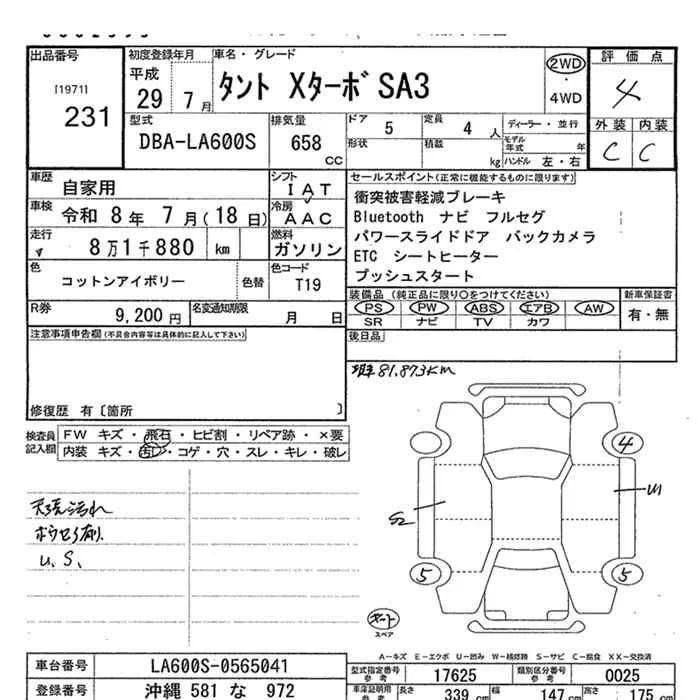 出品番号
[1971]
231
初度登録年月
平成
29 7月
車名・グレード
タント XターボSA3
2WD
・
4WD
評価点
4
外装 内装
C C
型式
DBA-LA600S
排気量
658
CC
ドア 5
定員 4 人
形状
積載 kg
ディーラー・並行
モデル年式 年
ハンドル 左・右
車歴
自家用
シフト
I A T
車検 令和 8年 7月(18日)
冷房
A A C
走行
8万1千880 km
燃料
ガソリン
色
コットンアイボリー
色替
色コード
T19
R券
9,200円
名変通知期限
月 日
セールスポイント(正常に機能するものに限ります)
衝突被害軽減ブレーキ
Bluetooth ナビ フルセグ
パワースライドドア バックカメラ
ETC シートヒーター
プッシュスタート
装備品(純正品に限り○をつけてください)
PS PW ABS エアB AW
SR ナビ TV カワ
新車保証書
有・無
後日品
注意事項申告欄(不具合内容等は具体的に記入して下さい)
修復歴 有〔箇所 〕
検査員記入欄
FW キズ・飛石・ヒビ割・リペア跡・×要
内装 キズ・汚レ・コゲ・穴・スレ・キレ・破レ
81,873KM
4
S2
U1
5
5
天張汚れ
U、S、
スペア
A－キズ E－エクボ U－凹み W－補修跡 S－サビ C－腐食 XX－交換済
車台番号 LA600S-0565041
登録番号 沖縄 581 な 972
型式指定番号参考 17625
類別区分番号参考 0025
車庫証明用参考 長さ 339cm 幅 147cm 高さ 175cm